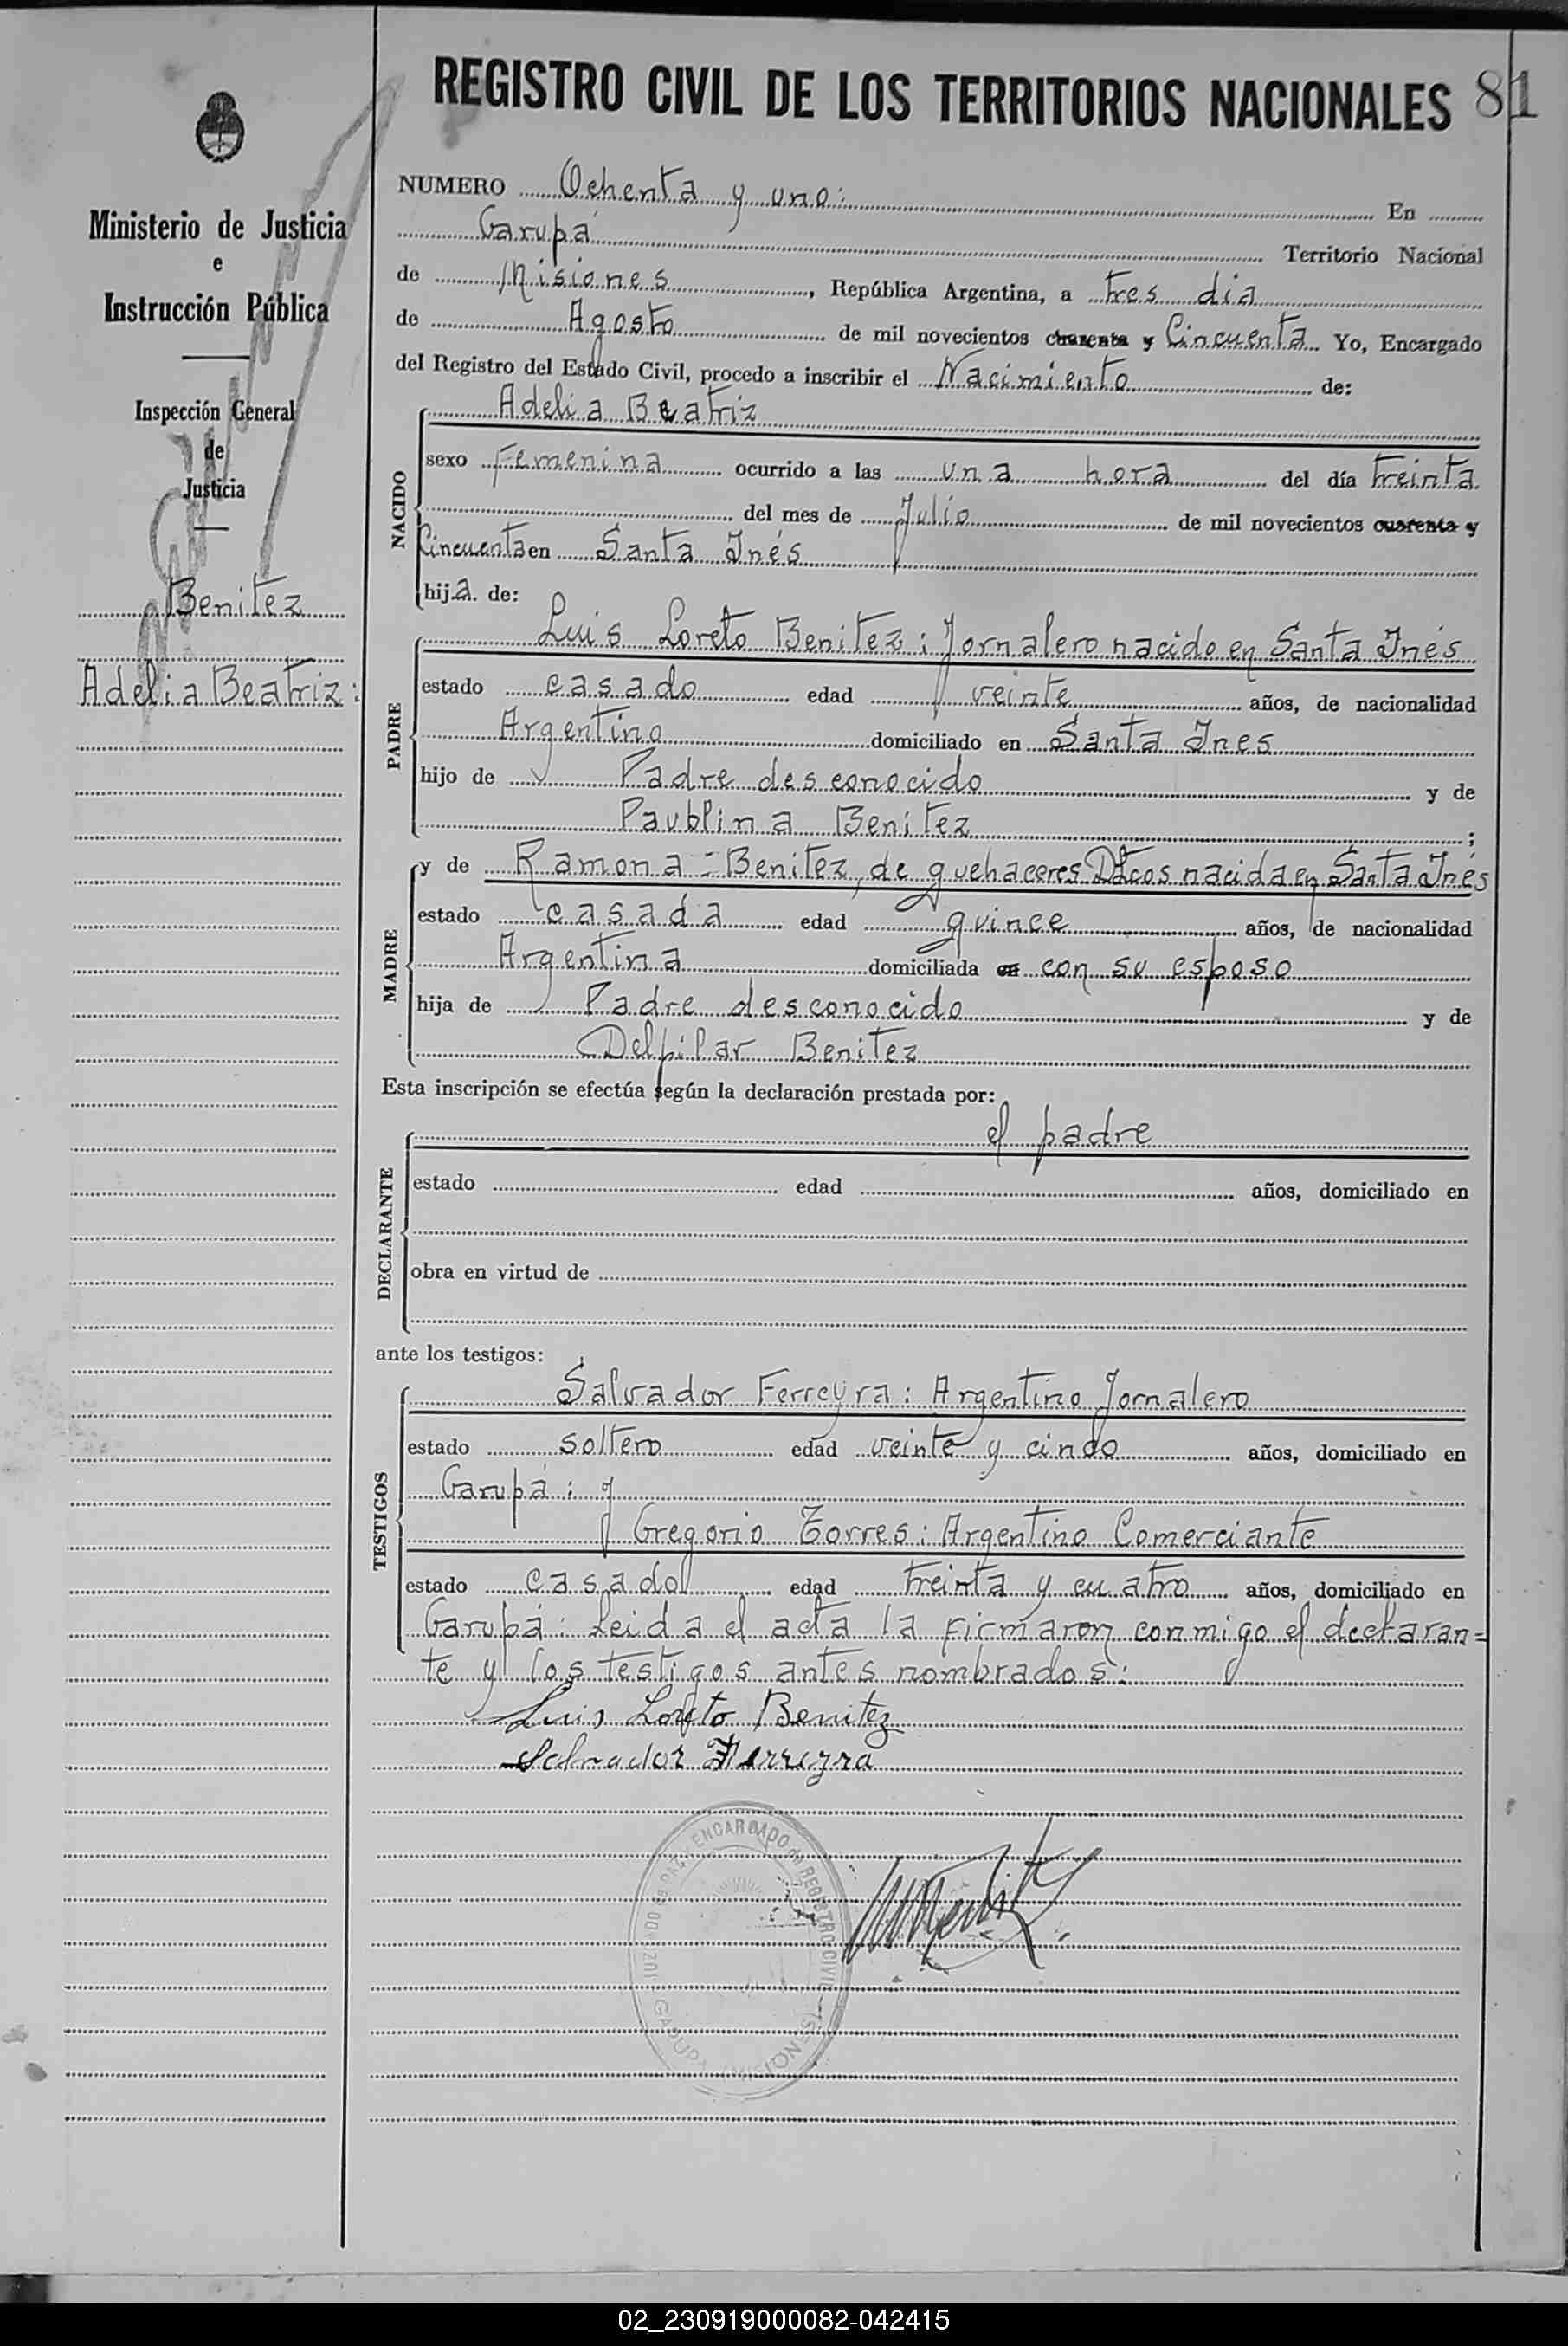 REGISTRO CIVIL DE LOS TERRITORIOS NACIONALES 81
Ministerio de Justicia
e
Instrucción Pública
Inspección General
de
Justicia
Benitez
Adelia Beatriz:
NUMERO Ochenta y uno: En
Garupá Territorio Nacional
de Misiones, República Argentina, a tres dia
de Agosto de mil novecientos cuarenta y Cincuenta Yo, Encargado
del Registro del Estado Civil, procedo a inscribir el Nacimiento de:
NACIDO
Adelia Beatriz
sexo Femenina ocurrido a las una hora del día treinta
del mes de Julio de mil novecientos cuarenta y
Cincuenta en Santa Inés
hija de:
PADRE
Luis Loreto Benitez: Jornalero nacido en Santa Inés
estado casado edad veinte años, de nacionalidad
Argentino domiciliado en Santa Ines
hijo de Padre desconocido y de
Paublina Benitez ;
MADRE
y de Ramona = Benitez, de quehaceres Dtcos nacida en Santa Inés
estado casada edad quince años, de nacionalidad
Argentina domiciliada en con su esposo
hija de Padre desconocido y de
Delpilar Benitez
Esta inscripción se efectúa según la declaración prestada por:
DECLARANTE
el padre
estado edad años, domiciliado en
obra en virtud de
ante los testigos:
TESTIGOS
Salvador Ferreyra: Argentino Jornalero
estado soltero edad veinte y cinco años, domiciliado en
Garupá: y
Gregorio Torres: Argentino Comerciante
estado casado edad treinta y cuatro años, domiciliado en
Garupá: Leida el acta la firmaron conmigo el declaran=
te y los testigos antes nombrados:
Luis Loreto Benitez
Salvador Ferreyra
JUZGADO DE PAZ Y ENCARGADO del REGISTRO CIVIL
GARUPA (MISIONES)
02_230919000082-042415